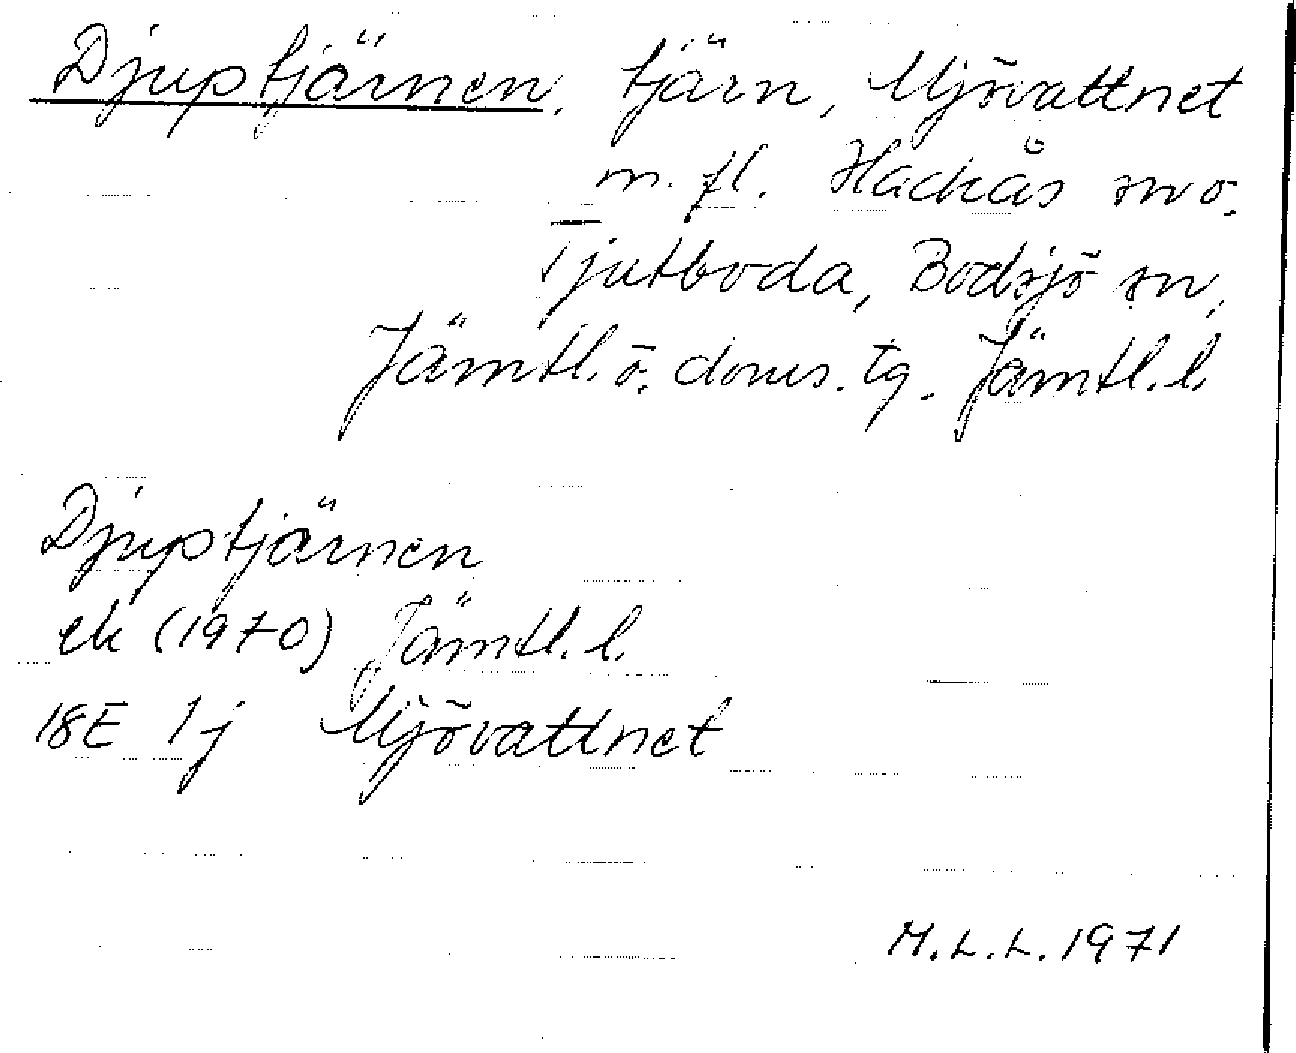 Djuptjärnen, tjärn, Mjövattnet
m. fl. Hackås sn o.
Tjutboda, Bodsjö sn,
Jämtl. ö. doms. tg. Jämtl. l.
Djuptjärnen
ek (1970) Jämtl. l.
18E 1j Mjövattnet
M.L.L. 1971